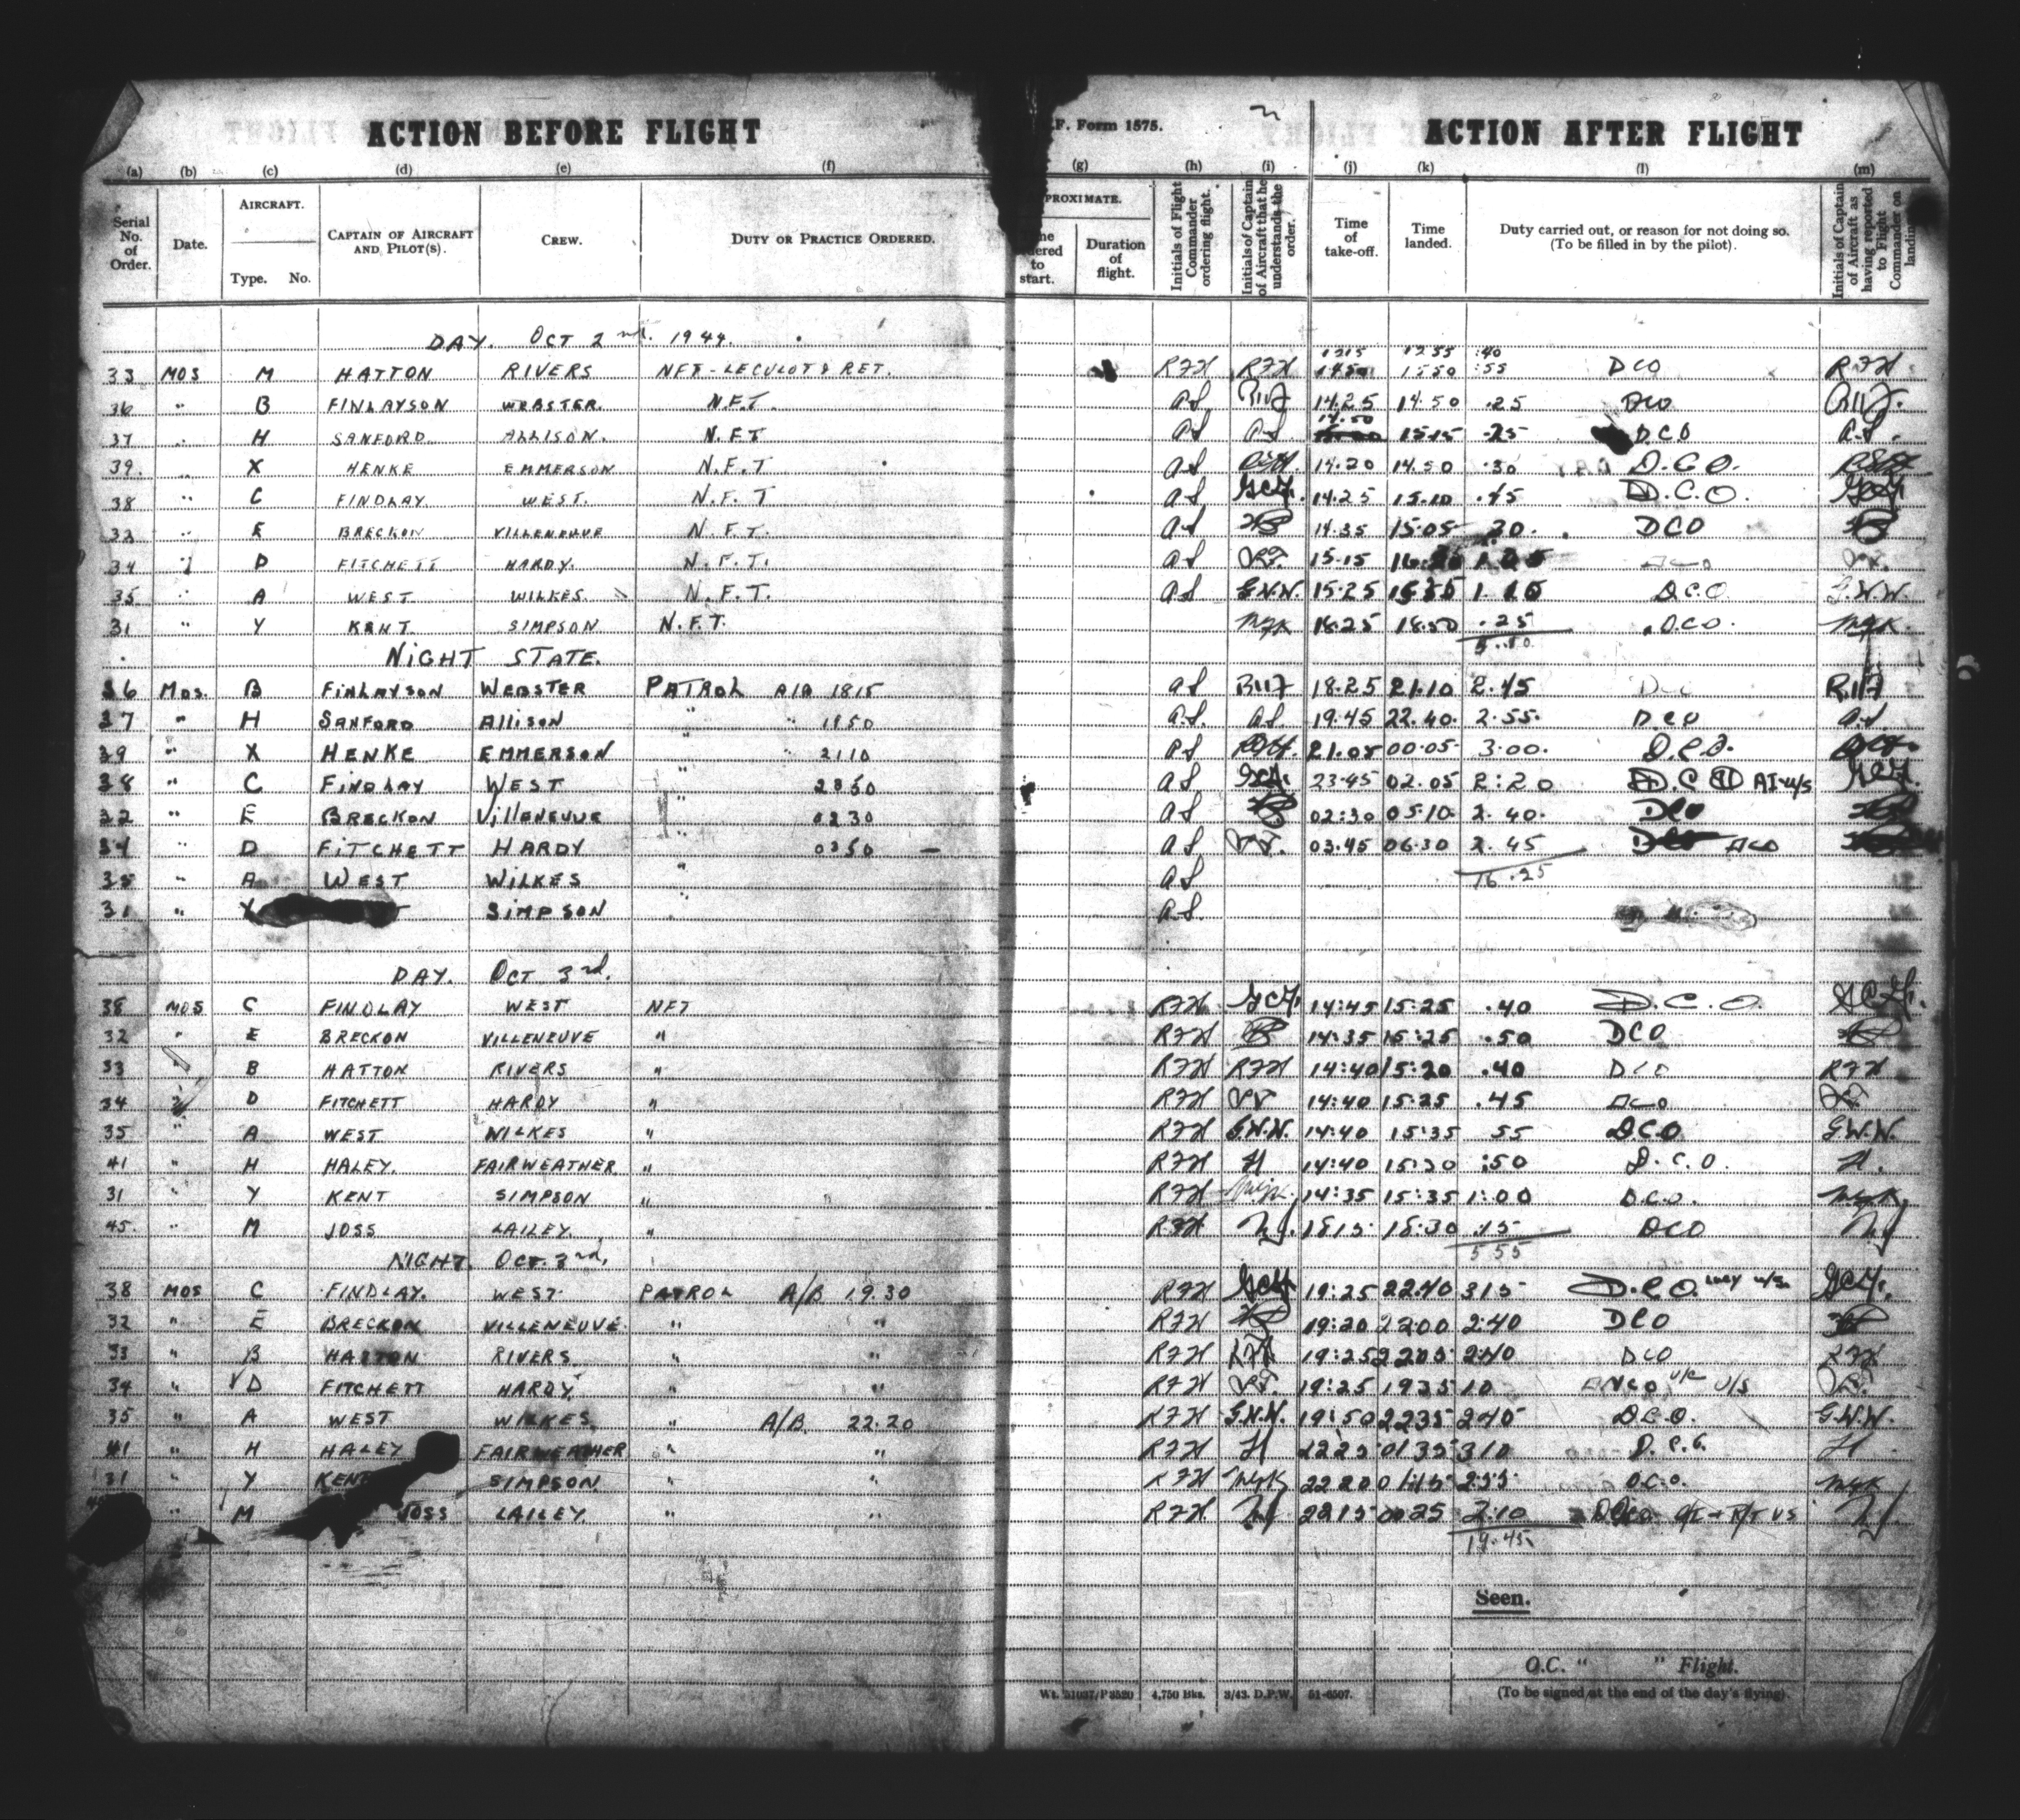 ACTION BEFORE FLIGHT
F. Form 1575.
ACTION AFTER FLIGHT
(a) (b) (c) (d) (e) (f) (g) (h) (i) (j) (k) (l) (m)
Serial No. of Order.
Date.
AIRCRAFT.
Type. No.
CAPTAIN OF AIRCRAFT AND PILOT(S).
CREW.
DUTY OR PRACTICE ORDERED.
PROXIMATE.
to start.
Duration of flight.
Initials of Flight Commander ordering flight.
Initials of Captain of Aircraft that he understands the order.
Time of take-off.
Time landed.
Duty carried out, or reason for not doing so.
(To be filled in by the pilot).
Initials of Captain of Aircraft as having reported to Flight Commander on landing
DAY. OCT 2nd. 1944.
1215 1255 :40
33 MOS M HATTON RIVERS NFT - LECULOT & RET. RFH RFH 1450 1550 :55 DCO RFH
36 " B FINLAYSON WEBSTER. N.F.T. AS 14.25 14.50 .25 DCO
14.50
37 " H SANFORD ALLISON. N.F.T AS AS 15.15 .25 DCO A.S.
39 " X HENKE EMMERSON N.F.T AS 14.20 14.50 .30 D.C.O.
38 " C FINDLAY WEST. N.F.T AS GCF. 14.25 15.10 .45 D.C.O. GCF
32 " E BRECKON VILLENEUVE N.F.T. AS 14.35 15.05 DCO
34 " D FITCHETT HARDY. N.F.T. AS 15.15 DCO
35 " A WEST WILKES N.F.T. AS G.W.W. 15.25 D.C.O. G.W.W.
31 " Y KENT. SIMPSON N.F.T. MJK 18.25 18.50 .25 D.CO. MJK.
NIGHT STATE.
36 MOS. B FINLAYSON WEBSTER PATROL A/B 1815 AS 18.25 21.10 2.45 DCO
37 " H SANFORD ALLISON " " 1950 A.S. AS 19.45 22.40 2.55 DCO AS
39 " X HENKE EMMERSON " " 2110 AS 21.05 00.05 3.00. D.C.O.
38 " C FINDLAY WEST " 2350 AS GCF. 23.45 02.05 2:20 D.C.O AI-u/s GCF.
32 " E BRECKON VILLENEUVE " 0230 AS 02:30 05.10 2.40. DCO
34 " D FITCHETT HARDY " 0350 — AS 03.45 06.30 2.45 DCO
35 " A WEST WILKES " AS 16.25
31 " Y SIMPSON " A.S.
DAY. OCT 3rd.
38 MOS C FINDLAY WEST NFT RFH GCF. 14:45 15:25 .40 D.C.O. GCF.
32 " E BRECKON VILLENEUVE " RFH 14:35 15:25 .50 DCO
33 " B HATTON RIVERS " RFH RFH 14:40 15:20 .40 DCO RFH
34 " D FITCHETT HARDY " RFH 14:40 15:25 .45 DCO
35 " A WEST WILKES " RFH G.W.W. 14:40 15:35 55 D.C.O G.W.W.
41 " H HALEY. FAIRWEATHER " RFH H 14:40 15:30 :50 D.C.O. H.
31 " Y KENT SIMPSON " RFH MJK. 14:35 15:35 1:00 D.C.O. MJK.
45. " M JOSS LAILEY. " RFH 1815 18:30 .15 DCO
5 55
NIGHT. OCT. 3rd.
38 MOS C FINDLAY. WEST PATROL A/B 19.30 RFH GCF 19:25 22:40 315 D.C.O. u/s GCF.
32 " E BRECKON VILLENEUVE " " RFH 19:20 2200 2:40 DCO
33 " B HATTON RIVERS " " RFH RFH 19:25 2205 2:40 DCO RFH
34 " D FITCHETT HARDY. " " RFH 19:25 1935 10 DNCO U/S
35 " A WEST WILKES " A/B. 22.20 RFH G.W.W. 19:50 2235 245 D.C.O. G.W.W.
41 " H HALEY FAIRWEATHER " " RFH H 2225 0135 310 D.C.O. H
31 " Y KENT SIMPSON " " RFH MJK 2220 0115 2:55 D.C.O. MJK
" M JOSS LAILEY. " " RFH 2215 0025 2:10 DCO R/T US
19.45
Seen.
O.C. “ ” Flight.
(To be signed at the end of the day's flying).
4,750 Bks. 3/43. D.P.W. 51-6507.